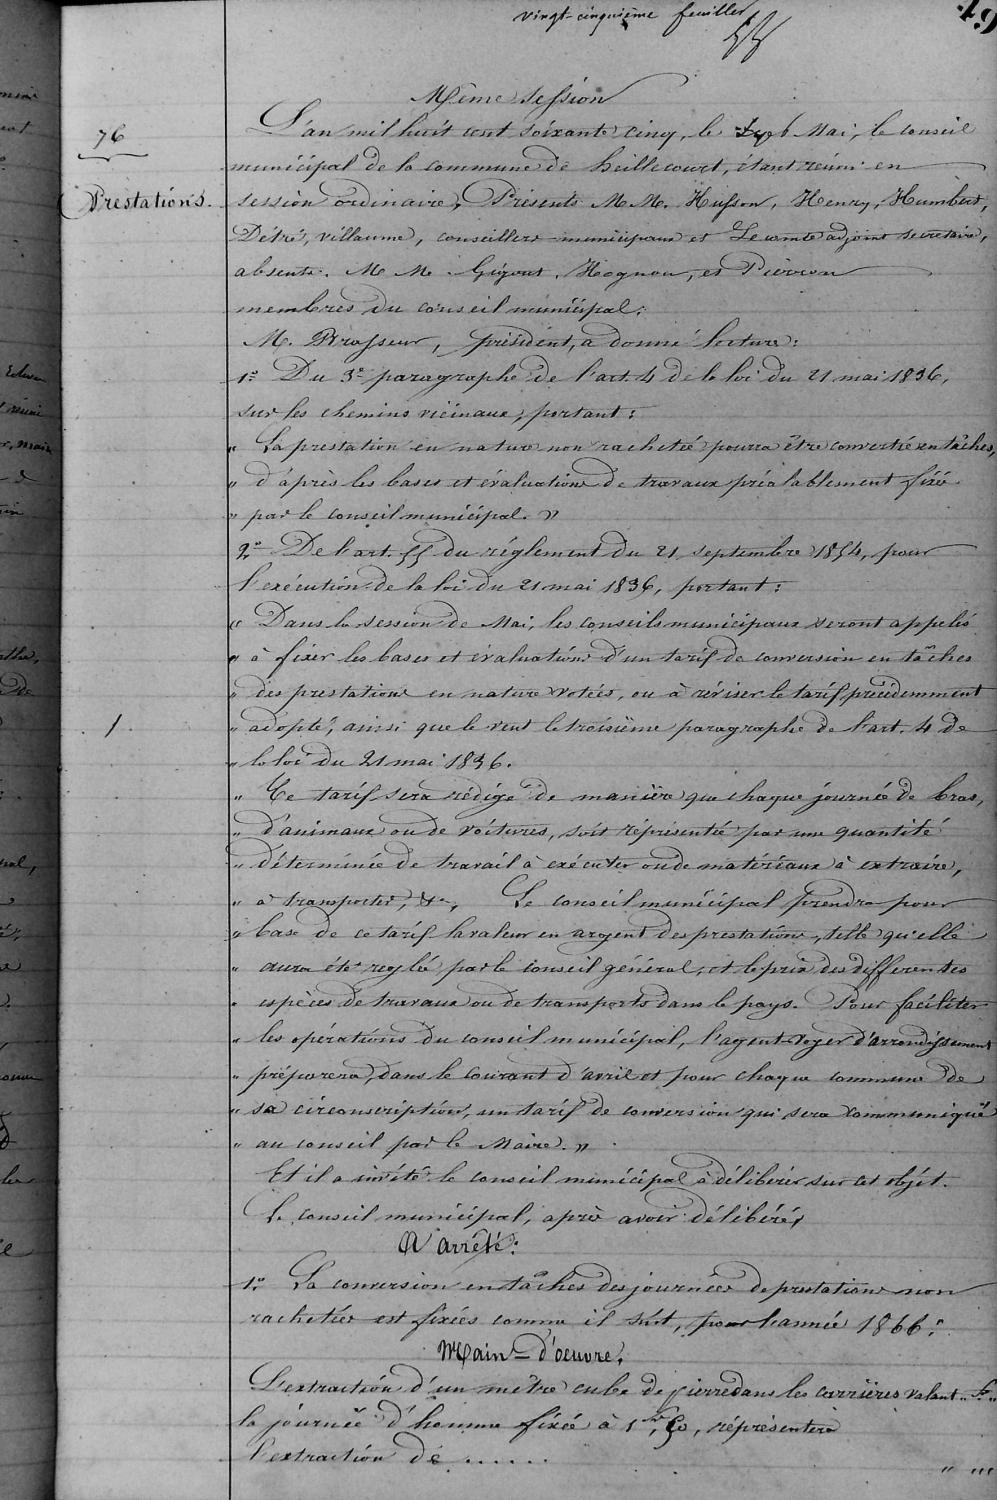 vingt-cinquième feuillet
49
Même session
76
L'an mil huit cent soixante cinq, le 6 Mai, le conseil
municipal de la commune de heillecourt, étant réuni en
Prestations.
session ordinaire, Présents M.M. Husson, Henry, Humbert,
Détré, Villaume, conseillers municipaux et Lecomte adjoint secretaire,
absents. M M. Gigout, Hognon, et Pierron
membres du conseil municipal.
M. Brasseur, président, a donné lecture:
1° Du 3e paragraphe de l'art. 4 de la loi du 21 mai 1836,
sur les chemins vicinaux, portant:
" La prestation en nature non rachetée pourra être convertie en tâches,
" d'après les bases et évaluations de travaux préalablement fixé
" par le conseil municipal. "
2° De l'art. 55 du réglement du 21 septembre 1854, pour
l'exécution de la loi du 21 mai 1836, portant:
" Dans la session de Mai, les conseils municipaux seront appelés
" à fixer les bases et évaluations d'un tarif de conversion en tâches
" des prestations en nature votées, ou à réviser le tarif précédemment
" adopté, ainsi que le veut le troisième paragraphe de l'art. 4 de
" la loi du 21 mai 1836.
" Ce tarif sera rédigé de manière que chaque journée de bras,
" d'animaux ou de voitures, soit réprésentée par une quantité
" déterminée de travail à exécuter ou de matériaux à extraire,
" à transporter, &a, Le conseil municipal prendra pour
" base de ce tarif la valeur en argent des prestations, telle qu'elle
" aura été reglée par le conseil général, et le prix des differentes
" espèces de travaux ou de transports dans le pays. Pour faciliter
" les opérations du conseil municipal, l'agent-voyer d'arrondissement
" préparera, dans le courant d'avril et pour chaque commune de
" sa circonscription, un tarif de conversion qui sera communiqué
" au conseil par le Maire. "
Et il a invité le conseil municipal à délibérer sur cet objet.
Le conseil municipal, après avoir délibéré,
A arrêté:
1° La conversion en tâches des journées de prestations non
rachetées est fixées comme il suit, pour l'année 1866:
Main-d'oeuvre.
L'extraction d'un mètre cube de pierre dans les carrières valant " fr "
la journée d'homme fixée à 1 fr, 50, réprésentera
l'extraction de ......